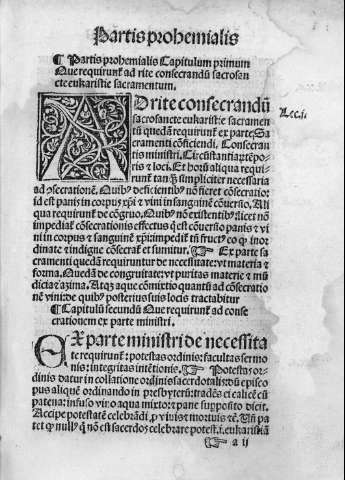 Partis prohemialis
¶ Partis prohemialis Capitulum primum
Que requirunt̃ ad rite consecrandũ sacrosan
cte eukaristie sacramentum.
AD rite consecrandũ
sacrosancte eukaristie sacramen
tũ quedã requirunt̃ ex parte Sa
cramenti cõficiendi. Consecran
tis ministri. Circũstantiarũ tẽpo
ris et loci. Et horũ aliqua requi
runt̃ tanq̃ simpliciter necessaria
ad ꝯsecrationẽ. Quibꝰ deficientibꝰ nõ fieret cõsecratio:
id est panis in corpus xp̃i et vini in sanguinẽ cõuersio. Ali
qua requirunt̃ de cõgruo. Quibꝰ nõ existentibꝰ licet nõ
impediat̃ cõsecrationis effectus q̃ est cõuersio panis et vi
ni in corpus et sanguinẽ xp̃i: impedit̃ tñ fructꝰ eo ꝙ inor
dinate et indigne cõsecrat̃ et sumitur. ☞ Ex parte sa
cramenti quedã requiruntur de necessitate: vt materia et
forma. Quedã de congruitate: vt puritas materie et mũ
dicia et azima. Atqꝫ aque cõmixtio quantũ ad cõsecratio
nẽ vini: de quibꝰ posterius suis locis tractabitur
¶ Capitulũ secundũ Que requirunt̃ ad conse
crationem ex parte ministri.
EX parte ministri de necessita
te requirunt̃: potestas ordinis: facultas sermo
nis: integritas intẽtionis. ☞ Potestas or
dinis datur in collatione ordinis sacerdotalis: dũ episco
pus aliquẽ ordinando in presbyterũ: tradẽs ei calicẽ cũ
patena: infuso vino aqua mixto: et pane supposito dicit.
Accipe potestatẽ celebrãdi, ꝓ viuis et mortuis etc̃. Vñ pa
tet ꝙ nullꝰ q̃ nõ est sacerdos celebrare potest .i. eukaristiã
☞ a ij